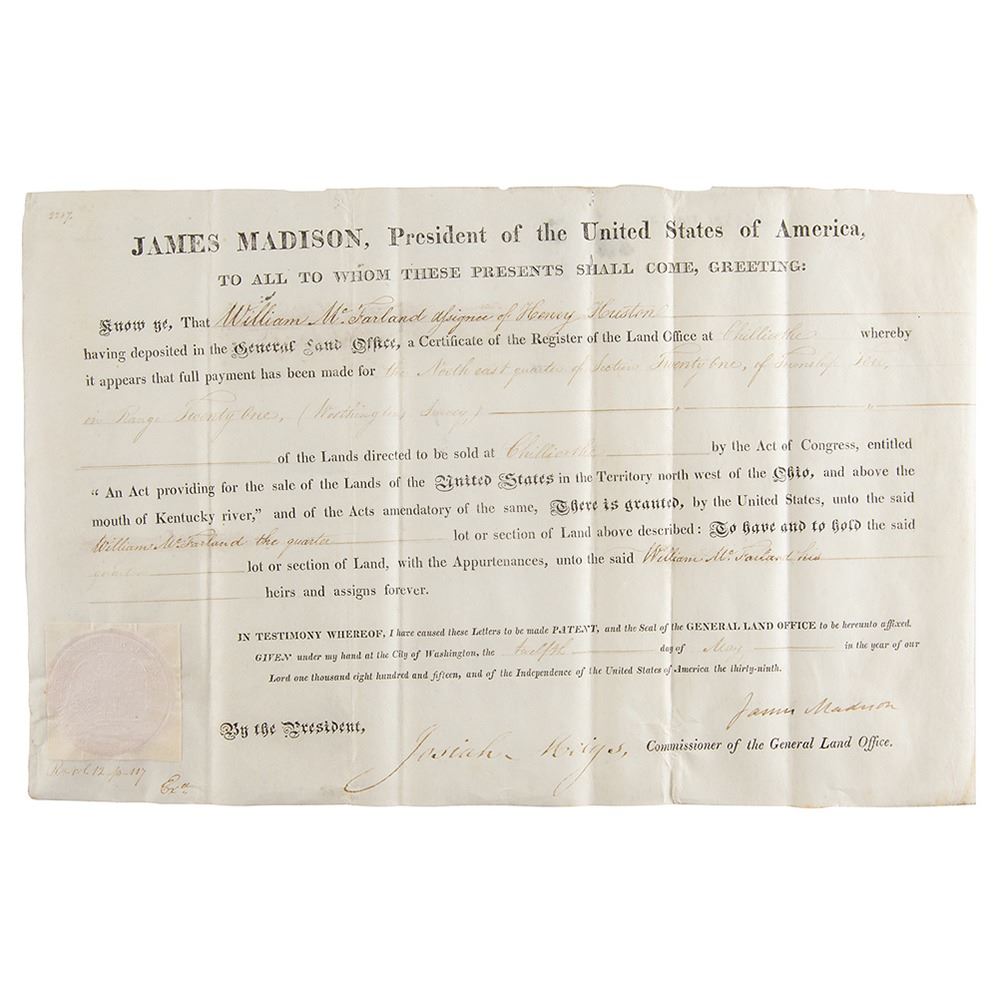 2217.
JAMES MADISON, President of the United States of America,
TO ALL TO WHOM THESE PRESENTS SHALL COME, GREETING:
Know ye, That William McFarland assignee of Henry Huston
having deposited in the General Land Office, a Certificate of the Register of the Land Office at Chillicothe whereby
it appears that full payment has been made for the North east quarter of Section Twenty One, of Township
in Range Twenty One, (Worthingtons Survey,)
of the Lands directed to be sold at Chillicothe by the Act of Congress, entitled
“ An Act providing for the sale of the Lands of the United States in the Territory north west of the Ohio, and above the
mouth of Kentucky river,” and of the Acts amendatory of the same, There is granted, by the United States, unto the said
William McFarland the quarter lot or section of Land above described: To have and to hold the said
quarter lot or section of Land, with the Appurtenances, unto the said William McFarland his
heirs and assigns forever.
IN TESTIMONY WHEREOF, I have caused these Letters to be made PATENT, and the Seal of the GENERAL LAND OFFICE to be hereunto affixed.
GIVEN under my hand at the City of Washington, the twelfth day of May in the year of our
Lord one thousand eight hundred and fifteen, and of the Independence of the United States of America the thirty-ninth.
James Madison
By the President,
Josiah Meigs, Commissioner of the General Land Office.
12 p 117
Exd